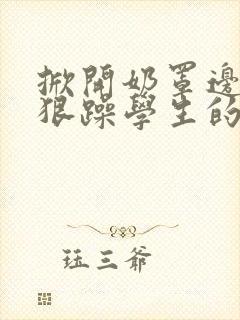 掀開奶罩邊
狠躁學生的
玨三爺